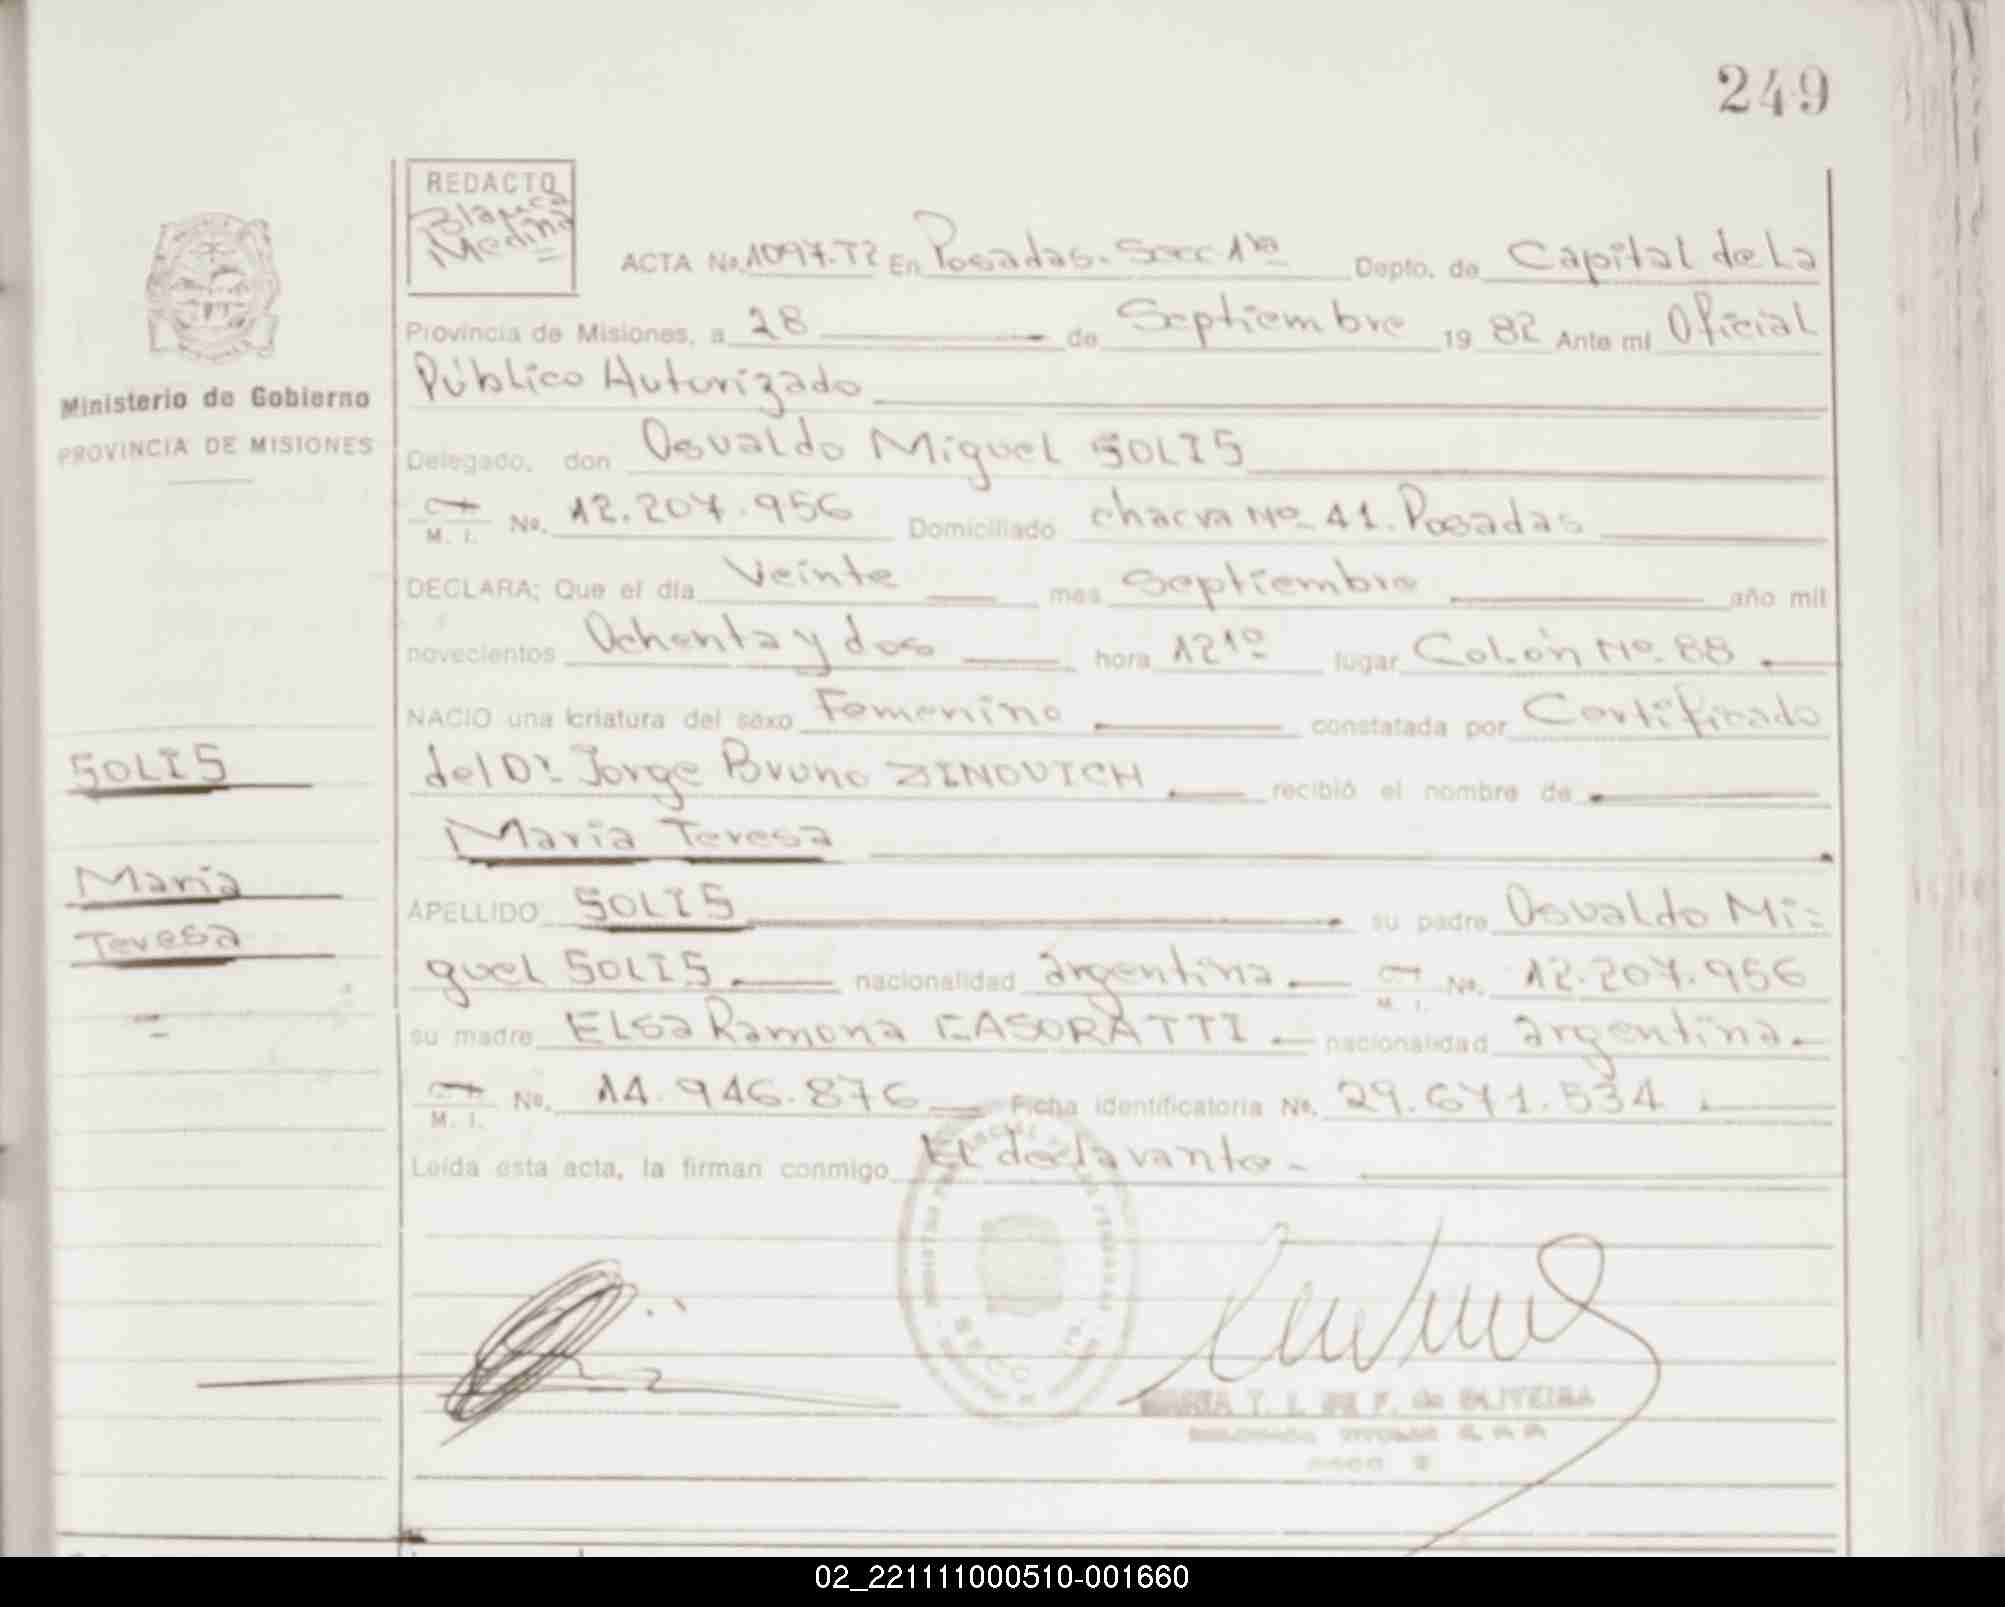 249
REDACTO
Blanca
Medina
ACTA No. 1097-T2 En Posadas. Secc 1ra Depto. de Capital de La
Provincia de Misiones, a 28 de Septiembre 19 82 Ante mi Oficial
Público Autorizado
Ministerio de Gobierno
PROVINCIA DE MISIONES
Delegado, don Osvaldo Miguel SOLIS
M. I. No. 12.207.956 Domiciliado chacra No. 41. Posadas
DECLARA; Que el día Veinte mes Septiembre año mil
novecientos Ochenta y dos hora 12 10 lugar Colón No. 88
NACIO una criatura del sexo Femenino constatada por Certificado
SOLIS
del Dr. Jorge Bruno ZINOVICH recibió el nombre de
María Teresa
María
Teresa
APELLIDO SOLIS su padre Osvaldo Mi=
guel SOLIS nacionalidad argentina M. I. No. 12.207.956
su madre ELsa Ramona CASORATTI nacionalidad argentina
M. I. No. 14.946.876 Ficha identificatoria No. 29.671.534
Leída esta acta, la firman conmigo El declarante
SECC 1ra.
de OLIVEIRA
02_221111000510-001660